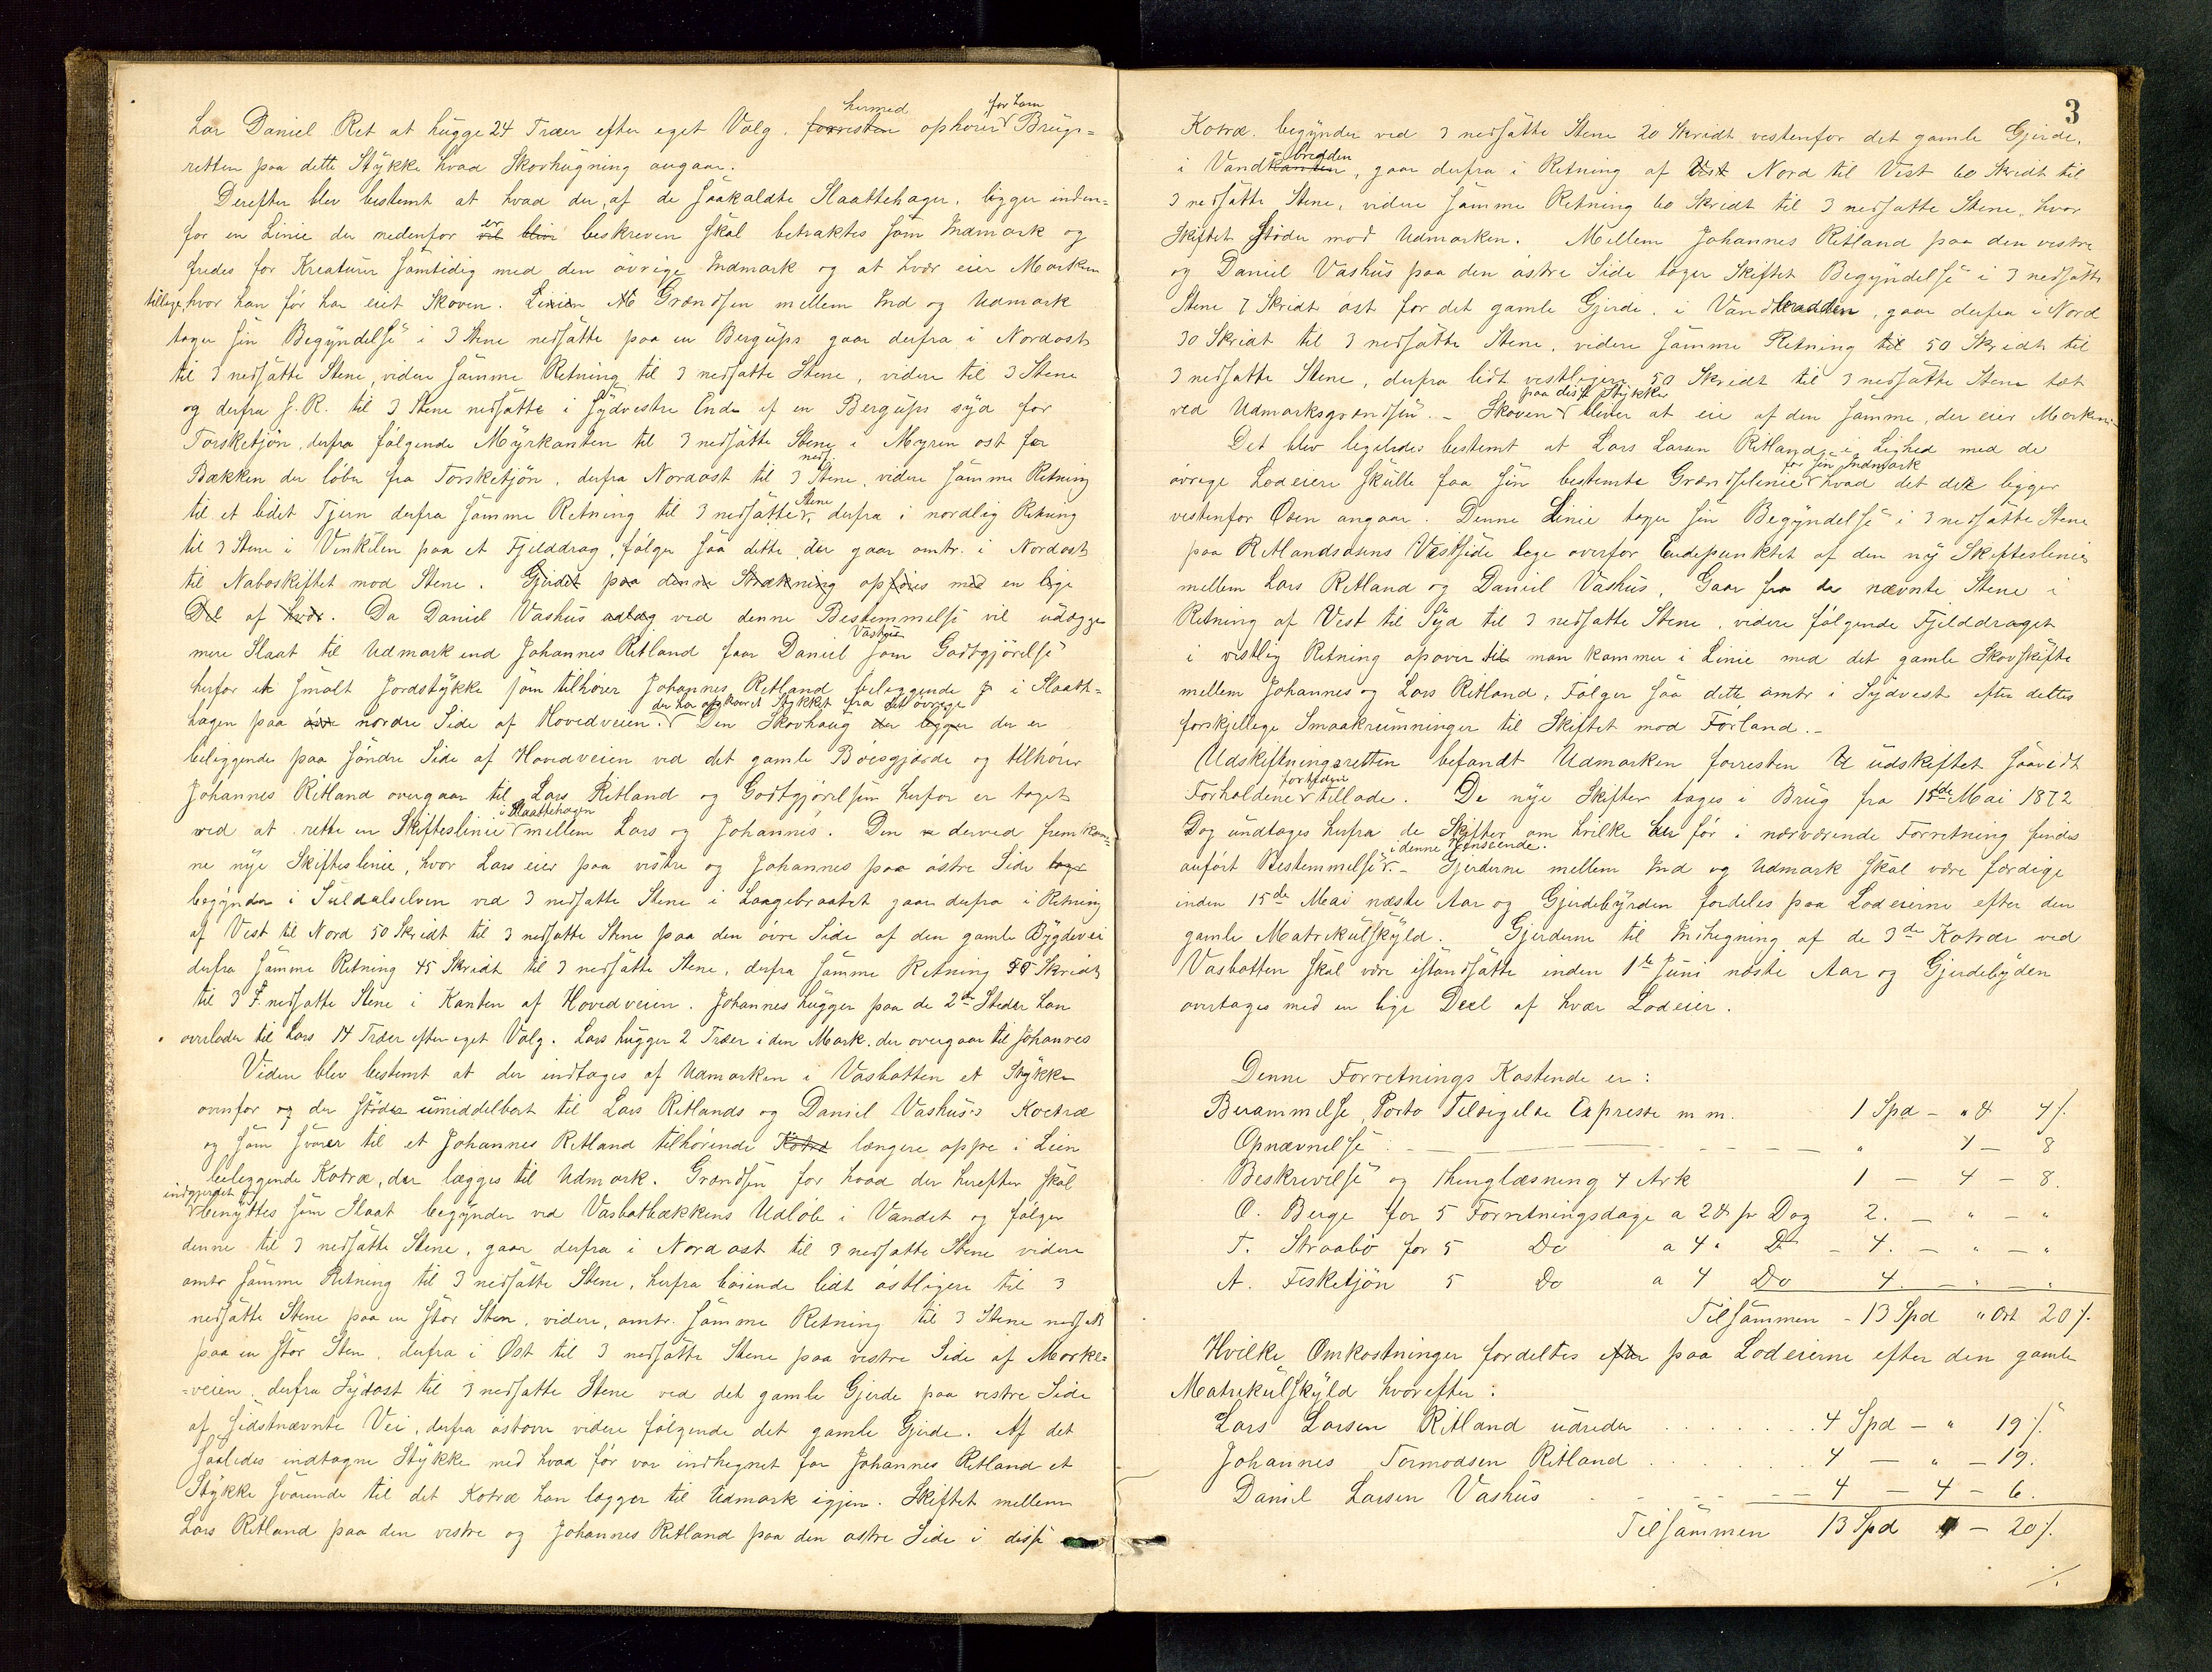 har Daniel Ret at hugge 24 Træer efter eget Valg. forresten hermed ophører for ham Brugs=
retten paa dette Stykke hvad Skovhugning angaar.
Derefter blev bestemt at hvad der, af de saakaldte Slaattehager, ligger inden=
for en Linie der nedenfor vil blive er beskreven skal betraktes som Indmark og
fredes for Kreaturer samtidig med den øvrige Indmark og at hvær eier Marken
tillige, hvor han før har eiet Skoven. Linien Grændsen mellem Ind og Udmark
tager sin Begyndelse i 3 Stene nedsatte paa en Bergups gaar derfra i Nordost
til 3 nedsatte Stene, videre samme Retning til 3 nedsatte Stene, videre til 3 Stene
og derfra s. R. til 3 Stene nedsatte i Sydvestre Ende af en Bergups syd for
Torsketjøn, derfra følgende Myrkanten til 3 nedsatte Stene i Myren ost for
Bækken der løber fra Torsketjøn, derfra Nordost til 3 neds. Stene, videre samme Retning
til et lidet Tjern derfra samme Retning til 3 nedsatte Stene, derfra i nordlig Retning
til 3 Stene i Venkilen paa et Fjelddrag, følger saa dette der gaar omtr. i Nordost
til Naboskiftet mod Stene. Gjerdet paa denne Strækning opføres med en lige
Del af hvær. Da Daniel Vashus udlæg ved denne Bestemmelse vil udlægge
mere Slaat til Udmark end Johannes Ritland faar Daniel Vashus som Godtgjørelse
herfor et smalt Jordstykke som tilhører Johannes Ritland beliggende i Slaatt=
hagen paa nordre Side af Hovedveien. der har afskaaret Stykket fra det øvrige Den Skovhaug der ligger der er
beliggende paa søndre Side af Hovedveien ved det gamle Bøisgjærde og tilhører
Johannes Ritland overgaar til Lars Ritland og Godtgjørelsen herfor er taget
ved at rette en Skifteslinie i Slaattehagen mellem Lars og Johannes. Den derved fremkom=
ne nye Skifteslinie, hvor Lars eier paa vestre og Johannes paa østre Side tager
begynder i Suldalselven ved 3 nedsatte Stene i Laagebraatet gaar derfra i Retning
af Vest til Nord 50 Skridt til 3 nedsatte Stene paa den øvre Side af den gamle Bygdevei
derfra samme Retning 45 Skridt til 3 nedsatte Stene, derfra samme Retning Skridt
til 3 nedsatte Stene i Kanten af Hovedveien. Johannes hugger paa de 2de Steder han
overlader til Lars 14 Træer efter eget Valg. Lars hugger 2 Træer i den Mark, der overgaar til Johannes
Videre blev bestemt at der indtages af Udmarken i Vasbotten et Stykke
ovenfor og der støder umiddelbart til Lars Ritlands og Daniel Vashus's Kotræ
og som svarer til et Johannes Ritland tilhørende Kotræ længere oppe i Lien
beliggende Kotræ, der lægges til Udmark. Grændsen for hvad der herefter skal
indgjerdet og benyttes som Slaat begynder ved Vasbotbækkens Udløb i Vandet og følger
denne til 3 nedsatte Stene, gaar derfra i Nordost til 3 nedsatte Stene videre
omtr samme Retning til 3 nedsatte Stene, herfra bøiende lidt østligere til 3
nedsatte Stene paa en stor Sten, videre, omtr. samme Retning til 3 Stene nedsatt
paa en stor Sten, derfra i Øst til 3 nedsatte Stene paa vestre Side af Marke=
=veien, derfra Sydost til 3 nedsatte Stene ved det gamle Gjerde paa vestre Side
af sidstnævnte Vei, derfra østover videre følgende det gamle Gjerde. Af det
saaledes indtagne Stykke med hvad før var indhegnet faar Johannes Ritland et
Stykke svarende til det Kotræ han lægger til Udmark igjen. Skiftet mellem
Lars Ritland paa den vestre og Johannes Ritland paa den østre Side i disse
3
Kotræ begynder ved 3 nedsatte Stene 20 Skridt vestenfor det gamle Gjerde,
i Vandkanten bredden, gaar derfra i Retning af Vest Nord til Vest 60 Skridt til
3 nedsatte Stene, videre samme Retning 60 Skridt til 3 nedsatte Stene, hvor
Skiftet støder mod Udmarken. Mellem Johannes Ritland paa den vestre
og Daniel Vashus paa den østre Side tager Skiftet Begyndelse i 3 nedsatte
Stene 7 Skridt øst for det gamle Gjerde, i Vandbredden, gaar derfra i Nord
30 Skridt til 3 nedsatte Stene, videre samme Retning til 50 Skridt til
3 nedsatte Stene, derfra lidt vestligere 50 Skridt til 3 nedsatte Stene tæt
ved Udmarksgrændsen. - Skoven paa disse Stykker bliver at eie af den samme, der eier Marken.
Det blev ligeledes bestemt at Lars Larsen Ritland, i Lighed med de
øvrige Lodeiere skulle faa sin bestemte Grændselinie for sin Indmark hvad det der ligger
vestenfor Osen angaar. Denne Linie tager sin Begyndelse i 3 nedsatte Stene
paa Ritlandsosens Vestside lige overfor Endepunktet af den ny Skifteslinie
mellem Lars Ritland og Daniel Vashus, Gaar fra de nævnte Stene i
Retning af Vest til Syd til 3 nedsatte Stene, videre følgende Fjelddraget
i vestlig Retning opover til man kommer i Linie med det gamle Skovskifte
mellem Johannes og Lars Ritland, Følger saa dette omtr i Sydvest efter dettes
forskjellige Smaakrumninger til Skiftet mod Førland.-
Udskiftningsretten befandt Udmarken forresten udskiftet saavidt
Forholdene fortiden tillade. De nye Skifter tages i Brug fra 15de Mai 1872
Dog undtages herfra de Skifter om hvilke der før i nærværende Forretning findes
anført Bestemmelse i denne Henseende. - Gjerderne mellem Ind og Udmark skal være færdige
inden 15de Mai næste Aar og Gjerdebyrden fordeles paa Lodeierne efter den
gamle Matrikulskyld. Gjerderne til Indhegning af de 3de Kotræer ved
Vasbotten skal være istandsatte inden 1te Juni næste Aar og Gjerdebyden
overtages med en lige Deel af hvær Lodeier.
Denne Forretnings Kostende er:
Berammelse, Porto Tilsigelse Expresse m m. 1 Spd - " 4 s.
Opnævnelse " 1 - 8
Beskrivelse og Thinglæsning 4 Ark 1 - 4 - 8.
O. Berge for 5 Forretningsdage a 2 pr Dag 2. - " - "
T. Straabø for 5 Do a 4 " Do - 4. - " - "
A. Fisketjøn 5 Do a 4 Do 4. - " - "
Tilsammen - 13 Spd " Ort 20 s.
Hvilke Omkostninger fordeltes efter paa Lodeierne efter den gamle
Matrikulskyld hvorefter:
Lars Larsen Ritland udreder 4 Spd - " 19 s.
Johannes Tormodsen Ritland 4 - " - 19.
Daniel Larsen Vashus 4 - 4 - 6.
Tilsammen 13 Spd - 20 s.